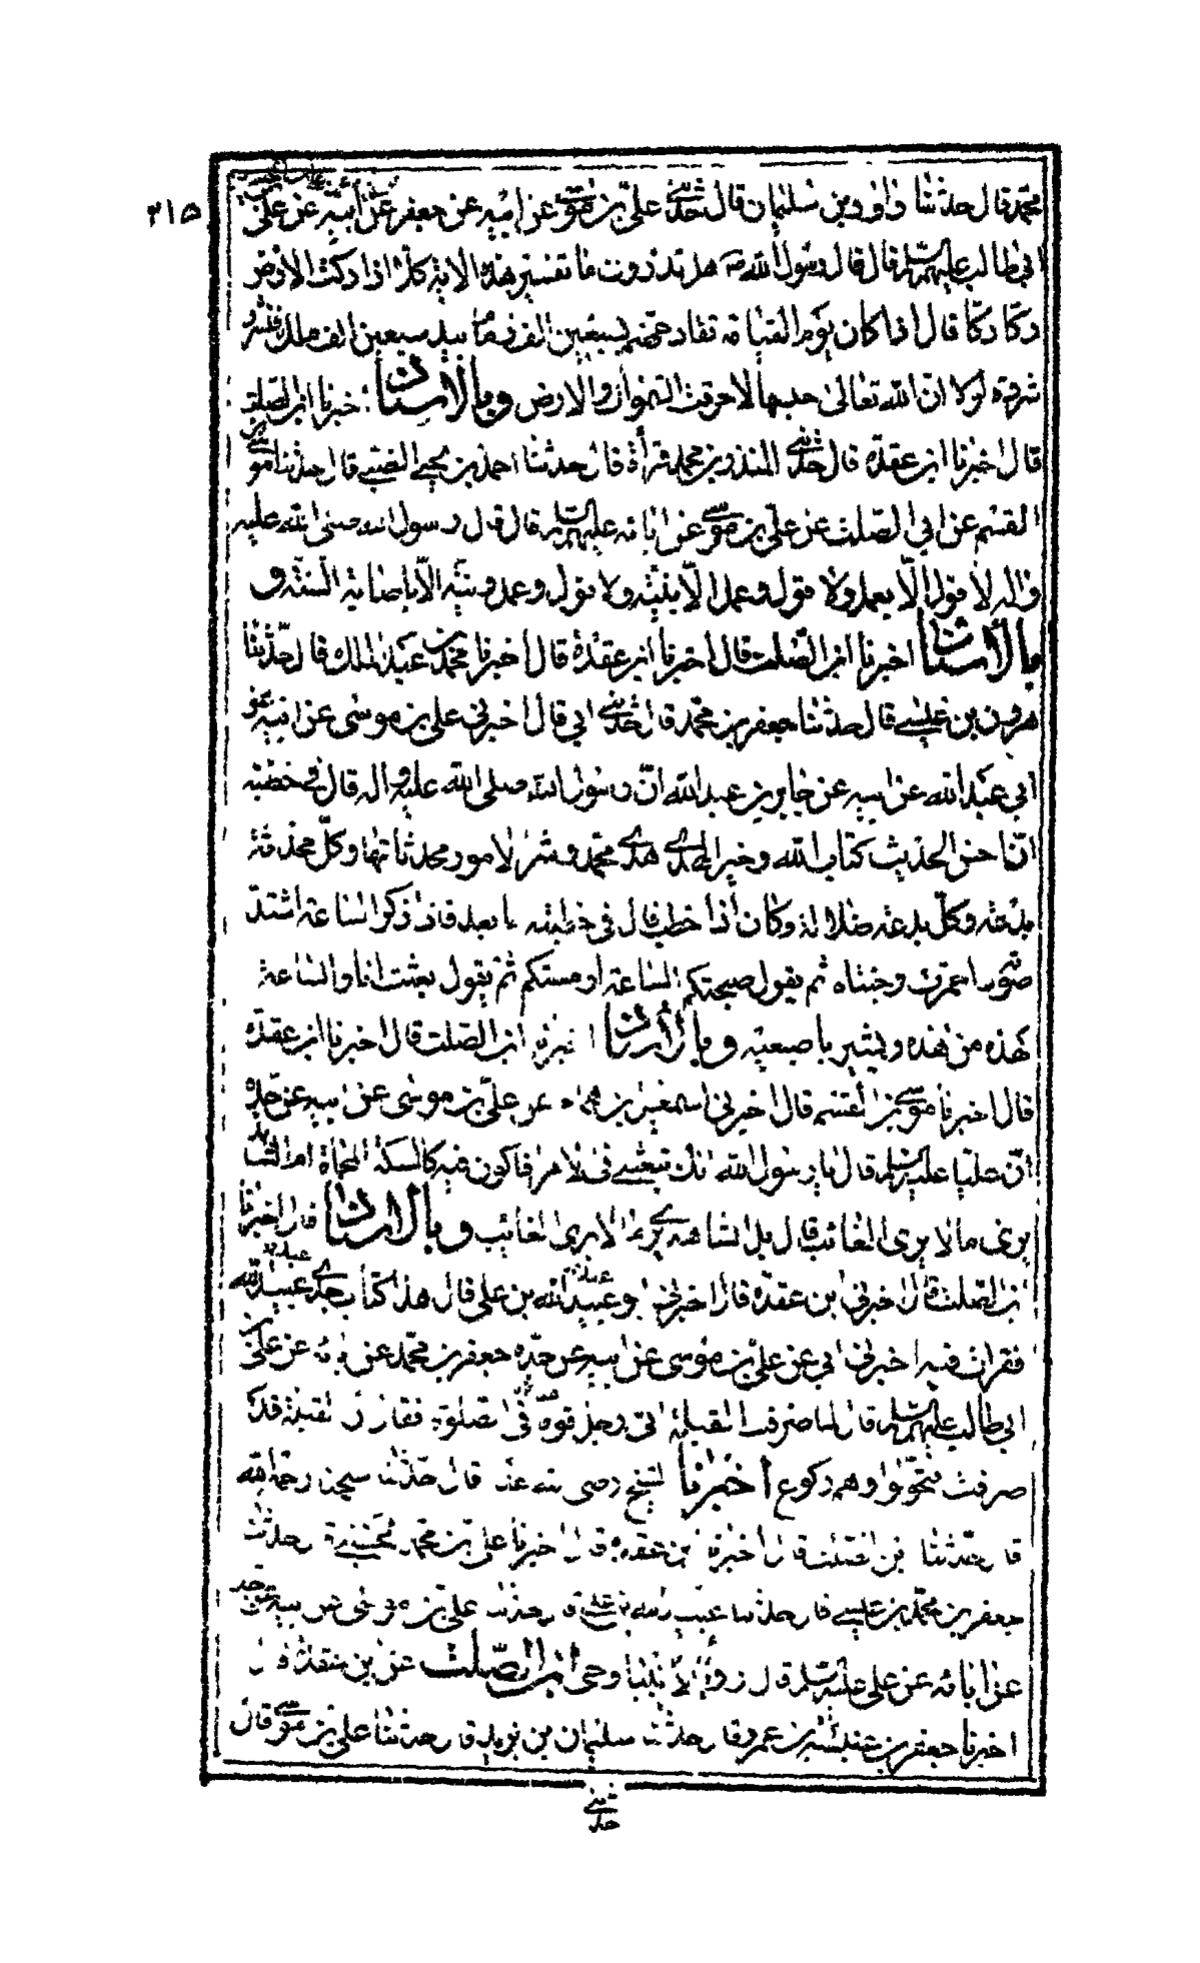 ٢١٥
محمد قال حدثنا داود بن سليمان قال حدثنى علىّ بن موسى عن ابيه عن جعفر عن ابيه عن على بن
ابى طالب عليهم السلم قال قال رسول الله ص هل تدرون ما تفسير هذه الاية كلا اذا دكت الارض
دكّا دكّا قال اذا كان يوم القيامة تقاد جهنم بسبعين الف زمام بيد سبعين الف ملك فتشرد
شردة لولا انّ الله تعالى حبسها لاحرقت السموات والارض وبالاسناد اخبرنا ابن الصلت
قال اخبرنا ابن عقدة قال حدثنى المنذر بن محمد قراءة قال حدثنا احمد بن يحيى الضبى قال حدثنا موسى بن
القسم عن ابى الصلت عن علىّ بن موسى عن ابائه عليهم السلم قال قال رسول الله صلى الله عليه
واله لا قول الّا بعمل ولا قول وعمل الّا بنيّة ولا قول وعمل ونيّة الّا باصابة السنّة و
بالاسناد اخبرنا ابن الصّلت قال اخبرنا ابن عقدة قال اخبرنا محمد بن عبد الملك قال حدّثنا
هرون بن عيسى قال حدثنا جعفر بن محمد قال حدثنى ابى قال اخبرنى على بن موسى عن ابيه عن
ابى عبد الله عن ابيه عن جابر بن عبد الله انّ رسول الله صلى الله عليه واله قال فى خطبته
انّ احسن الحديث كتاب الله وخير الهدى هدى محمّد وشر الامور محدثاتها وكلّ محدثة
بدعة وكلّ بدعة ضلالة وكان اذا خطب قال فى خطبته اما بعد فاذا ذكر الساعة اشتدّ
صوته احمرت وجنتاه ثم يقول صبحتكم الساعة او مستكم ثم يقول بعثت انا والساعة
كهذه من هذه ويشير باصبعيه وبالاسناد اخبرنا ابن الصّلت قال اخبرنا ابن عقدة
قال اخبرنا موسى بن القسم قال اخبرنى اسمعيل بن همام عن علىّ بن موسى عن ابيه عن جدّه
انّ عليّا عليه السلم قال يا رسول الله انك تبعثنى فى الامر فاكون فيه كالسكة المحماة ام الشاهد
يرى ما لا يرى الغائب قال بل الشاهد يرى ما لا يرى الغائب وبالاسناد قال اخبرنا
ابن الصّلت قال اخبرنى ابن عقدة قال اخبرنى عبيد الله بن على قال هذا كتاب جدى عبيد الله
فقرات فيه اخبرنى ابى عن علىّ بن موسى عن ابيه عن جدّه جعفر بن محمّد عن ابائه عن على بن
ابى طالب عليهم السلم قال لما صرفت القبلة اتى رجل قوما فى الصلوة فقال ان القبلة قد
صرفت فتحوّلوا وهم ركوع اخبرنا الشيخ رضى الله عنه قال حدّثنا شيخنا رحمه الله
قال حدّثنا ابن الصلت قال اخبرنا ابن عقدة قال اخبرنا على بن محمّد الحسينى قال حدثنا
جعفر بن محمّد بن عيسى قال حدثنا عبيد الله بن على قال حدثنا علىّ بن موسى عن ابيه عن جده
عن ابائه عن على عليه السلم قال رؤيا الانبياء وحى ابن الصّلت عن ابن عقدة قال
اخبرنا جعفر بن عنبسة بن عمرو قال حدثنا سليمان بن يزيد قال حدثنا على بن موسى قال
حدثنى